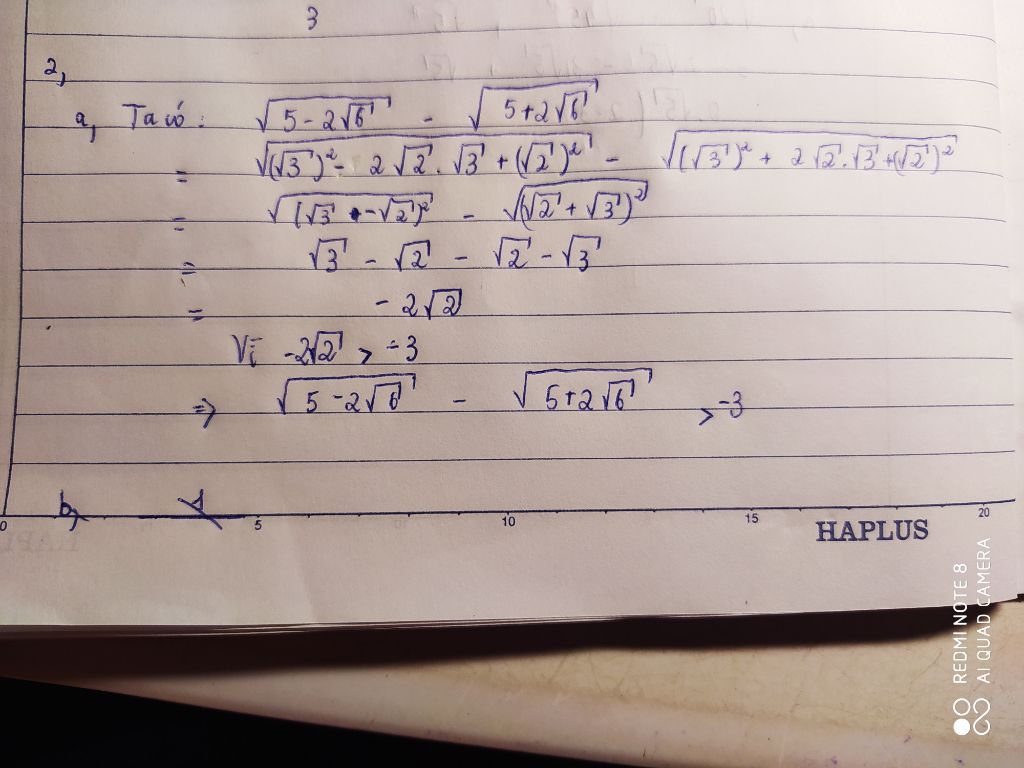 3
2,
a, Ta có: √(5-2√6) - √(5+2√6)
= √((√3)² - 2√2.√3 + (√2)²) - √((√3)² + 2√2.√3 + (√2)²)
= √((√3 - √2)²) - √((√2 + √3)²)
= √3 - √2 - √2 - √3
= -2√2
Vì -2√2 > -3
=> √(5-2√6) - √(5+2√6) > -3
b,
0 5 10 15 20
HAPLUS
REDMI NOTE 8
AI QUAD CAMERA